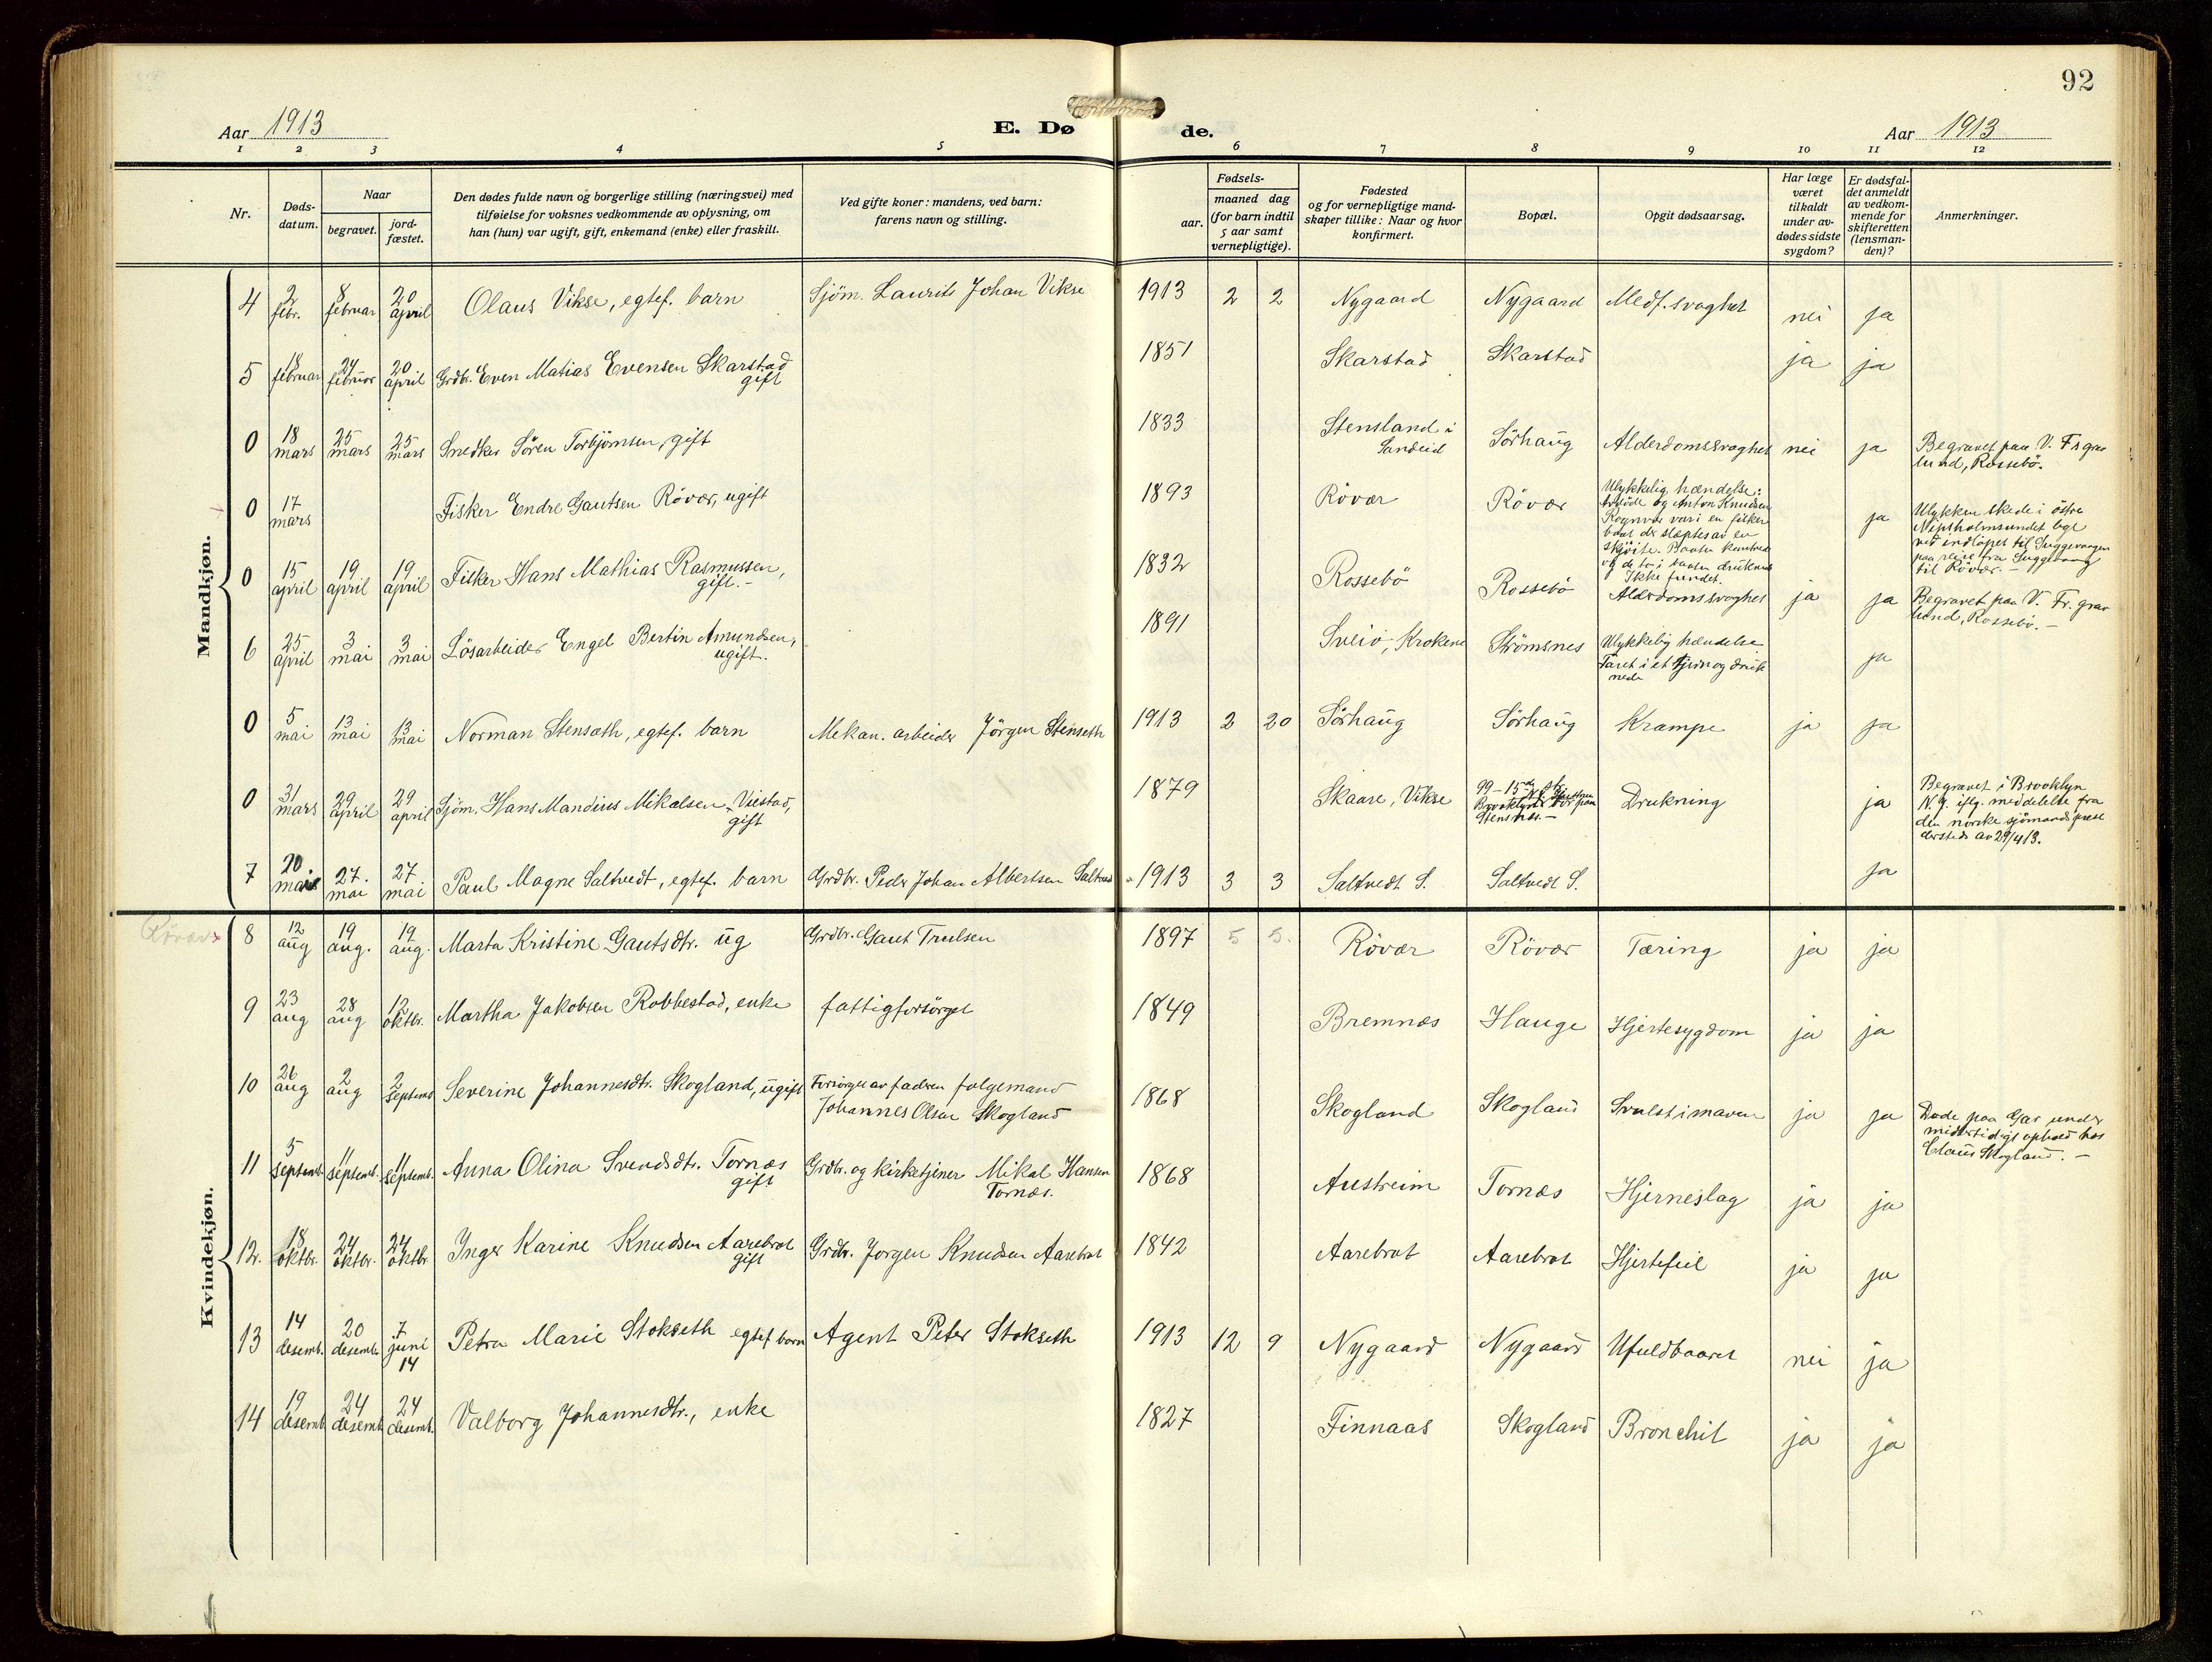 92
Aar 1913
E. Dø
de.
Aar 1913
1 2 3 4 5 6 7 8 9 10 11 12
Nr.
Døds-
datum.
Naar
begravet.
jord-
fæstet.
Den dødes fulde navn og borgerlige stilling (næringsvei) med
tilføielse for voksnes vedkommende av oplysning, om
han (hun) var ugift, gift, enkemand (enke) eller fraskilt.
Ved gifte koner: mandens, ved barn:
farens navn og stilling.
Fødsels-
aar.
maaned dag
(for barn indtil
5 aar samt
vernepligtige).
Fødested
og for vernepligtige mand-
skaper tillike: Naar og hvor
konfirmert.
Bopæl.
Opgit dødsaarsag.
Har læge
været
tilkaldt
under av-
dødes sidste
sygdom?
Er dødsfal-
det anmeldt
av vedkom-
mende for
skifteretten
(lensman-
den)?
Anmerkninger.
Mandkjøn.
4 2 febr. 8 februar 20 april Olaus Vikse, egtef. barn Sjöm. Laurits Johan Vikse 1913 2 2 Nygaard Nygaard Medf. svaghet nei ja
5 18 februar 24 februar 20 april Grdbr. Even Matias Evensen Skarstad
gift 1851 Skarstad Skarstad ja ja
0 18 mars 25 mars 25 mars Snedker Sören Torbjörnsen, gift 1833 Stensland i
Sandeid Sörhaug Alderdomssvaghet nei ja Begravet paa V. Fr grav
lund, Rossebö.
0 17 mars Fisker Endre Gautsen Rövær, ugift 1893 Rövær Rövær Ulykkelig hændelse:
og Anton Knudsen
var i en fisker
baat der slæptes av en
skjöite. Baaten kantret
og de to i baaten druknet
Ikke fundet. ja Ulykken skede i östre
ved indlöpet til
paa reise fra
til Rövær. -
0 15 april 19 april 19 april Fisker Hans Mathias Rasmussen,
gift. - 1832 Rossebö Rossebö Alderdomssvaghet ja ja Begravet paa V. Fr. grav
lund, Rossebö. -
6 25 april 3 mai 3 mai Lösarbeider Engel Bertin Amundsen,
ugift. 1891 Sveio, Krokene Strömsnes Ulykkelig hændelse
Faret i et tjern og druk
nede ja
0 5 mai 13 mai 13 mai Norman Stensæth, egtef. barn Mekan. arbeider Jörgen Stenseth 1913 2 20 Sörhaug Sörhaug Krampe ja ja
0 31 mars 29 april 29 april Sjöm. Hans Mandius Mikalsen Viestad,
gift 1879 Skaare, Vikse 99-15de St.
Brooklyn N.Y. Hustruen bor paa
Stensnæs. - Drukning ja Begravet i Brooklyn
N.Y. iflg. meddelelse fra
den norske sjömandsprest
dersteds av 29/4 13.
7 20. mai 27. mai 27 mai Paul Magne Saltvedt, egtef. barn Grdbr. Peder Johan Albertsen Saltvedt 1913 3 3 Saltvedt S. Saltvedt S. ja
Kvindekjøn.
Rövær
8 12 aug 19 aug. 19 aug. Marta Kristine Gautsdtr. ug Grdbr. Gaut Trulsen 1897 5 5. Rövær Rövær Tæring ja ja
9 23 aug 28 aug 12 oktbr. Martha Jakobsen Robbestad, enke fattigforsörget 1849 Bremnæs Hauge Hjertesygdom ja ja
10 26 aug 2 aug 2 septemb Severine Johannesdtr. Skogland, ugift Forsörget av faderen folgemand
Johannes Olsen Skogland 1868 Skogland Skogland Svulst i maven ja ja Döde paa Gar under
midlertidigt ophold hos
Claus Skogland. -
11 5 septemb. 11 septemb. 11 septemb. Anna Olina Svendsdtr. Tornæs
gift Grdbr. og kirketjener Mikal Hansen
Tornæs. 1868 Austreim Tornæs Hjerneslag ja ja
12. 18 oktbr. 24 oktbr. 24 oktbr Inger Karine Knudsen Aarebrot
gift Grdbr. Jorgen Knudsen Aarebrot 1842 Aarebrot Aarebrot Hjertefeil ja ja
13 14 desemb. 20 desemb. 7 juni 14 Petra Marie Stokseth egtef. barn Agent Peter Stokseth 1913 12 9 Nygaard Nygaard Ufuldbaaret nei ja
14 19 desemb. 24 desemb. 24 desemb. Valborg Johannesdtr., enke 1827 Finnaas Skogland Bronchit ja ja